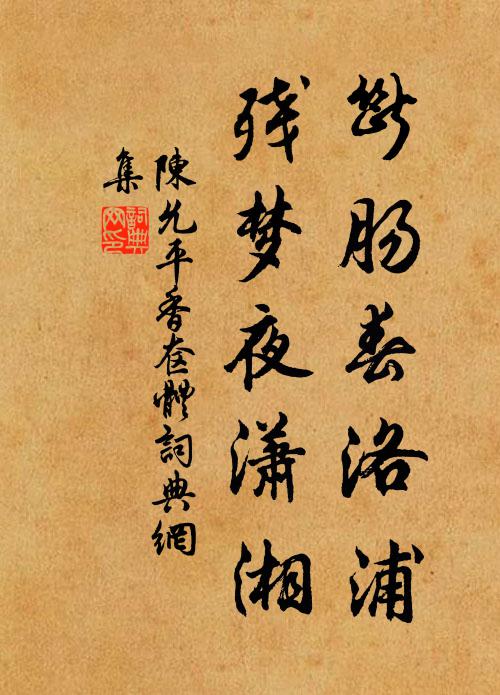 断肠春洛浦
残梦夜潇湘
陳允平香奩體詞典網
集
詞典網印